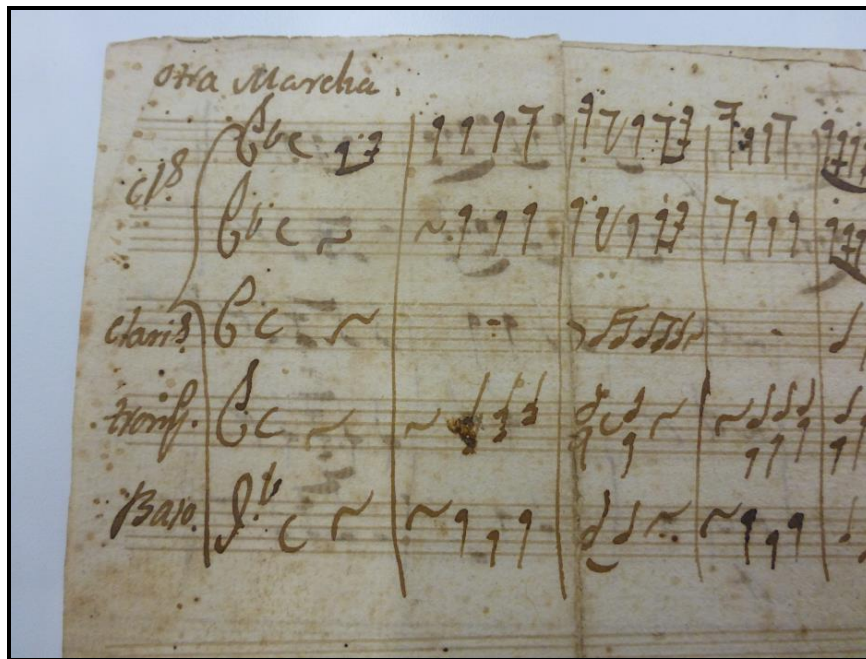 otra Marcha.
cl.s
clarin.s
tromp.
Baxo.